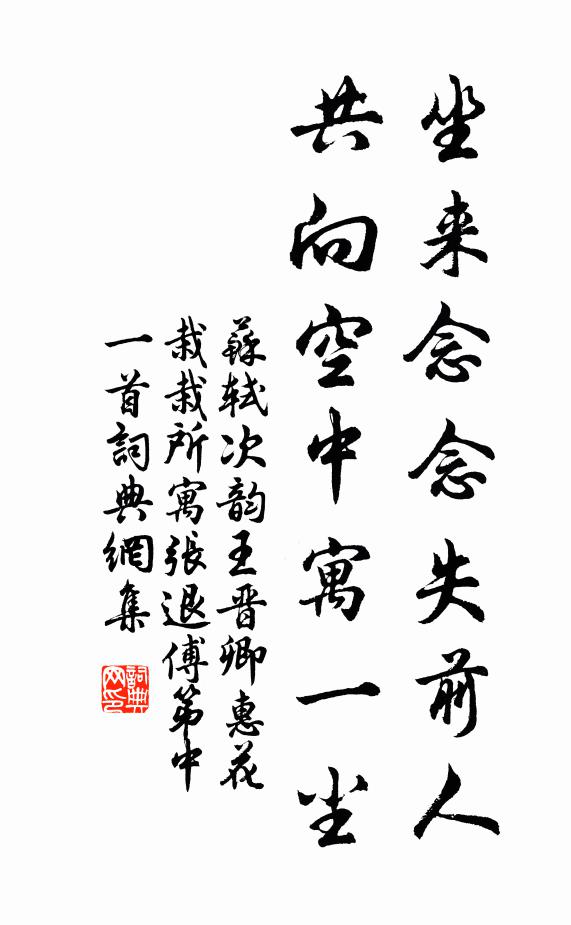 坐来念念失前人
共向空中寓一尘
蘇軾次韵王晋卿惠花
栽栽所寓張退傅第中
一首詞典網集
詞典网印